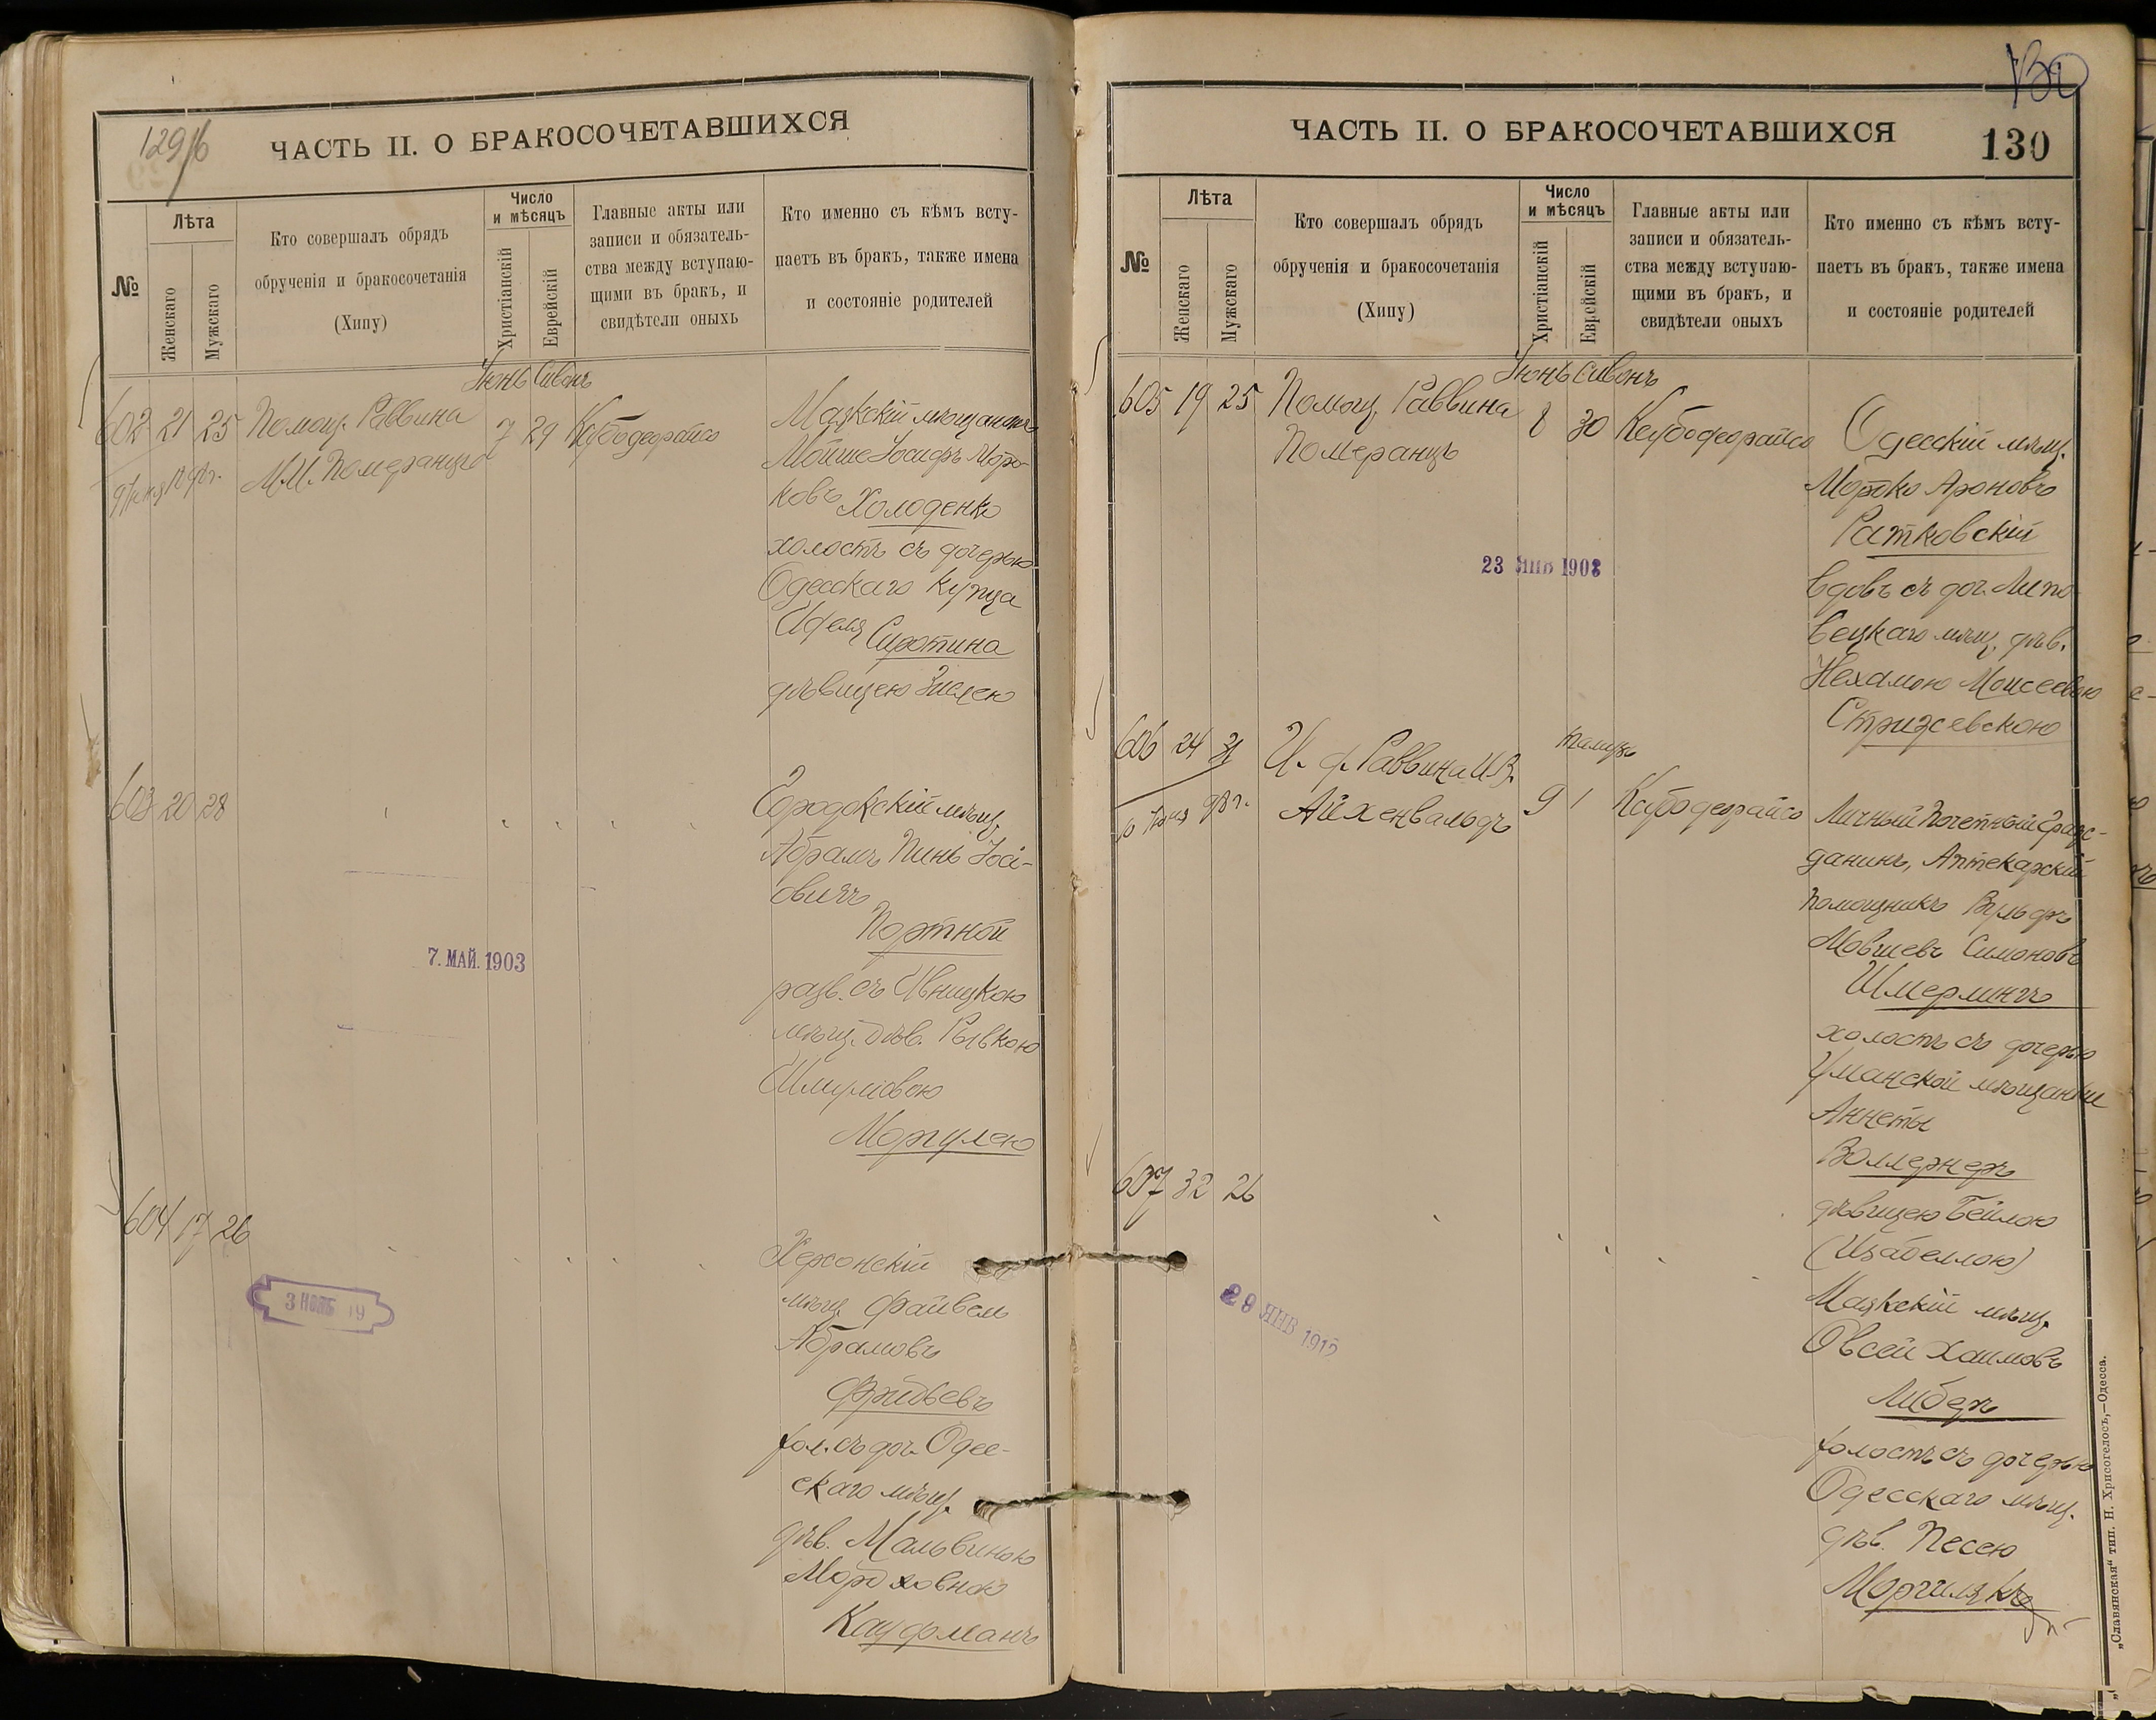 129
ЧАСТЬ II. О БРАКОСОЧЕТАВШИХСЯ
№
Лѣта
Женскаго
Мужскаго
Кто совершалъ обрядъ
обрученія и бракосочетанія
(Хипу)
Число
и мѣсяцъ
Христіанскій
Еврейскій
Главные акты или
записи и обязатель-
ства между вступаю-
щими въ бракъ, и
свидѣтели оныхъ
Кто именно съ кѣмъ всту-
паетъ въ бракъ, также имена
и состояніе родителей
Іюнь Сивонъ
602 21 25 Помощ. Раввина 7 29
М.И. Померанцъ
Маякскій мѣщанинъ
Мойше Іосифъ Морд-
ковъ Холоденко
холостъ съ дочерью
Одесскаго купца
Сиротина
дѣвицею Зислею
603 20 28
Городокскій мѣщ.
Абрамъ Пинь Іосі-
овичъ
Портной
разв. съ Ивницкою
мѣщ. дѣв. Рывкою
Шмуловою
Моргулею
7. МАЙ. 1903
604 17 26
Херсонскій
мѣщ. Файвель
Абрамовъ
хол. съ доч. Одес-
скаго мѣщ.
дѣв. Мальвиною
Мордховною
Кауфманъ
3 НОЯБ 19
ЧАСТЬ II. О БРАКОСОЧЕТАВШИХСЯ
130
№
Лѣта
Женскаго
Мужскаго
Кто совершалъ обрядъ
обрученія и бракосочетанія
(Хипу)
Число
и мѣсяцъ
Христіанскій
Еврейскій
Главные акты или
записи и обязатель-
ства между вступаю-
щими въ бракъ, и
свидѣтели оныхъ
Кто именно съ кѣмъ всту-
паетъ въ бракъ, также имена
и состояніе родителей
Іюнь Сивонъ
605 19 25 Помощ. Раввина 8 30
Померанцъ
Одесскій мѣщ.
Мордко Ароновъ
Ратковскій
вдовъ съ доч. Липо-
вецкаго мѣщ. дѣв.
Нехамою Моисеевою
Стрижевскою
23 ЯНВ 1908
606 24 31 И. д. Раввина И.З.
Айхенвальдъ 9 1
Личный Почетный Граж-
данинъ, Аптекарскій
помощникъ Вульфъ
Мовшевъ Симоновъ
Шмерлингъ
холостъ съ дочерью
Уманской мѣщанки
Аннеты
дѣвицею Бейлою
(Изабеллою)
607 32 26
Маякскій мѣщ.
Овсей Хаимовъ
Либеръ
холостъ съ дочерью
Одесскаго мѣщ.
дѣв. Песею
29 ЯНВ 1912
„Славянская“ тип. Н. Хрисогелосъ,—Одесса.